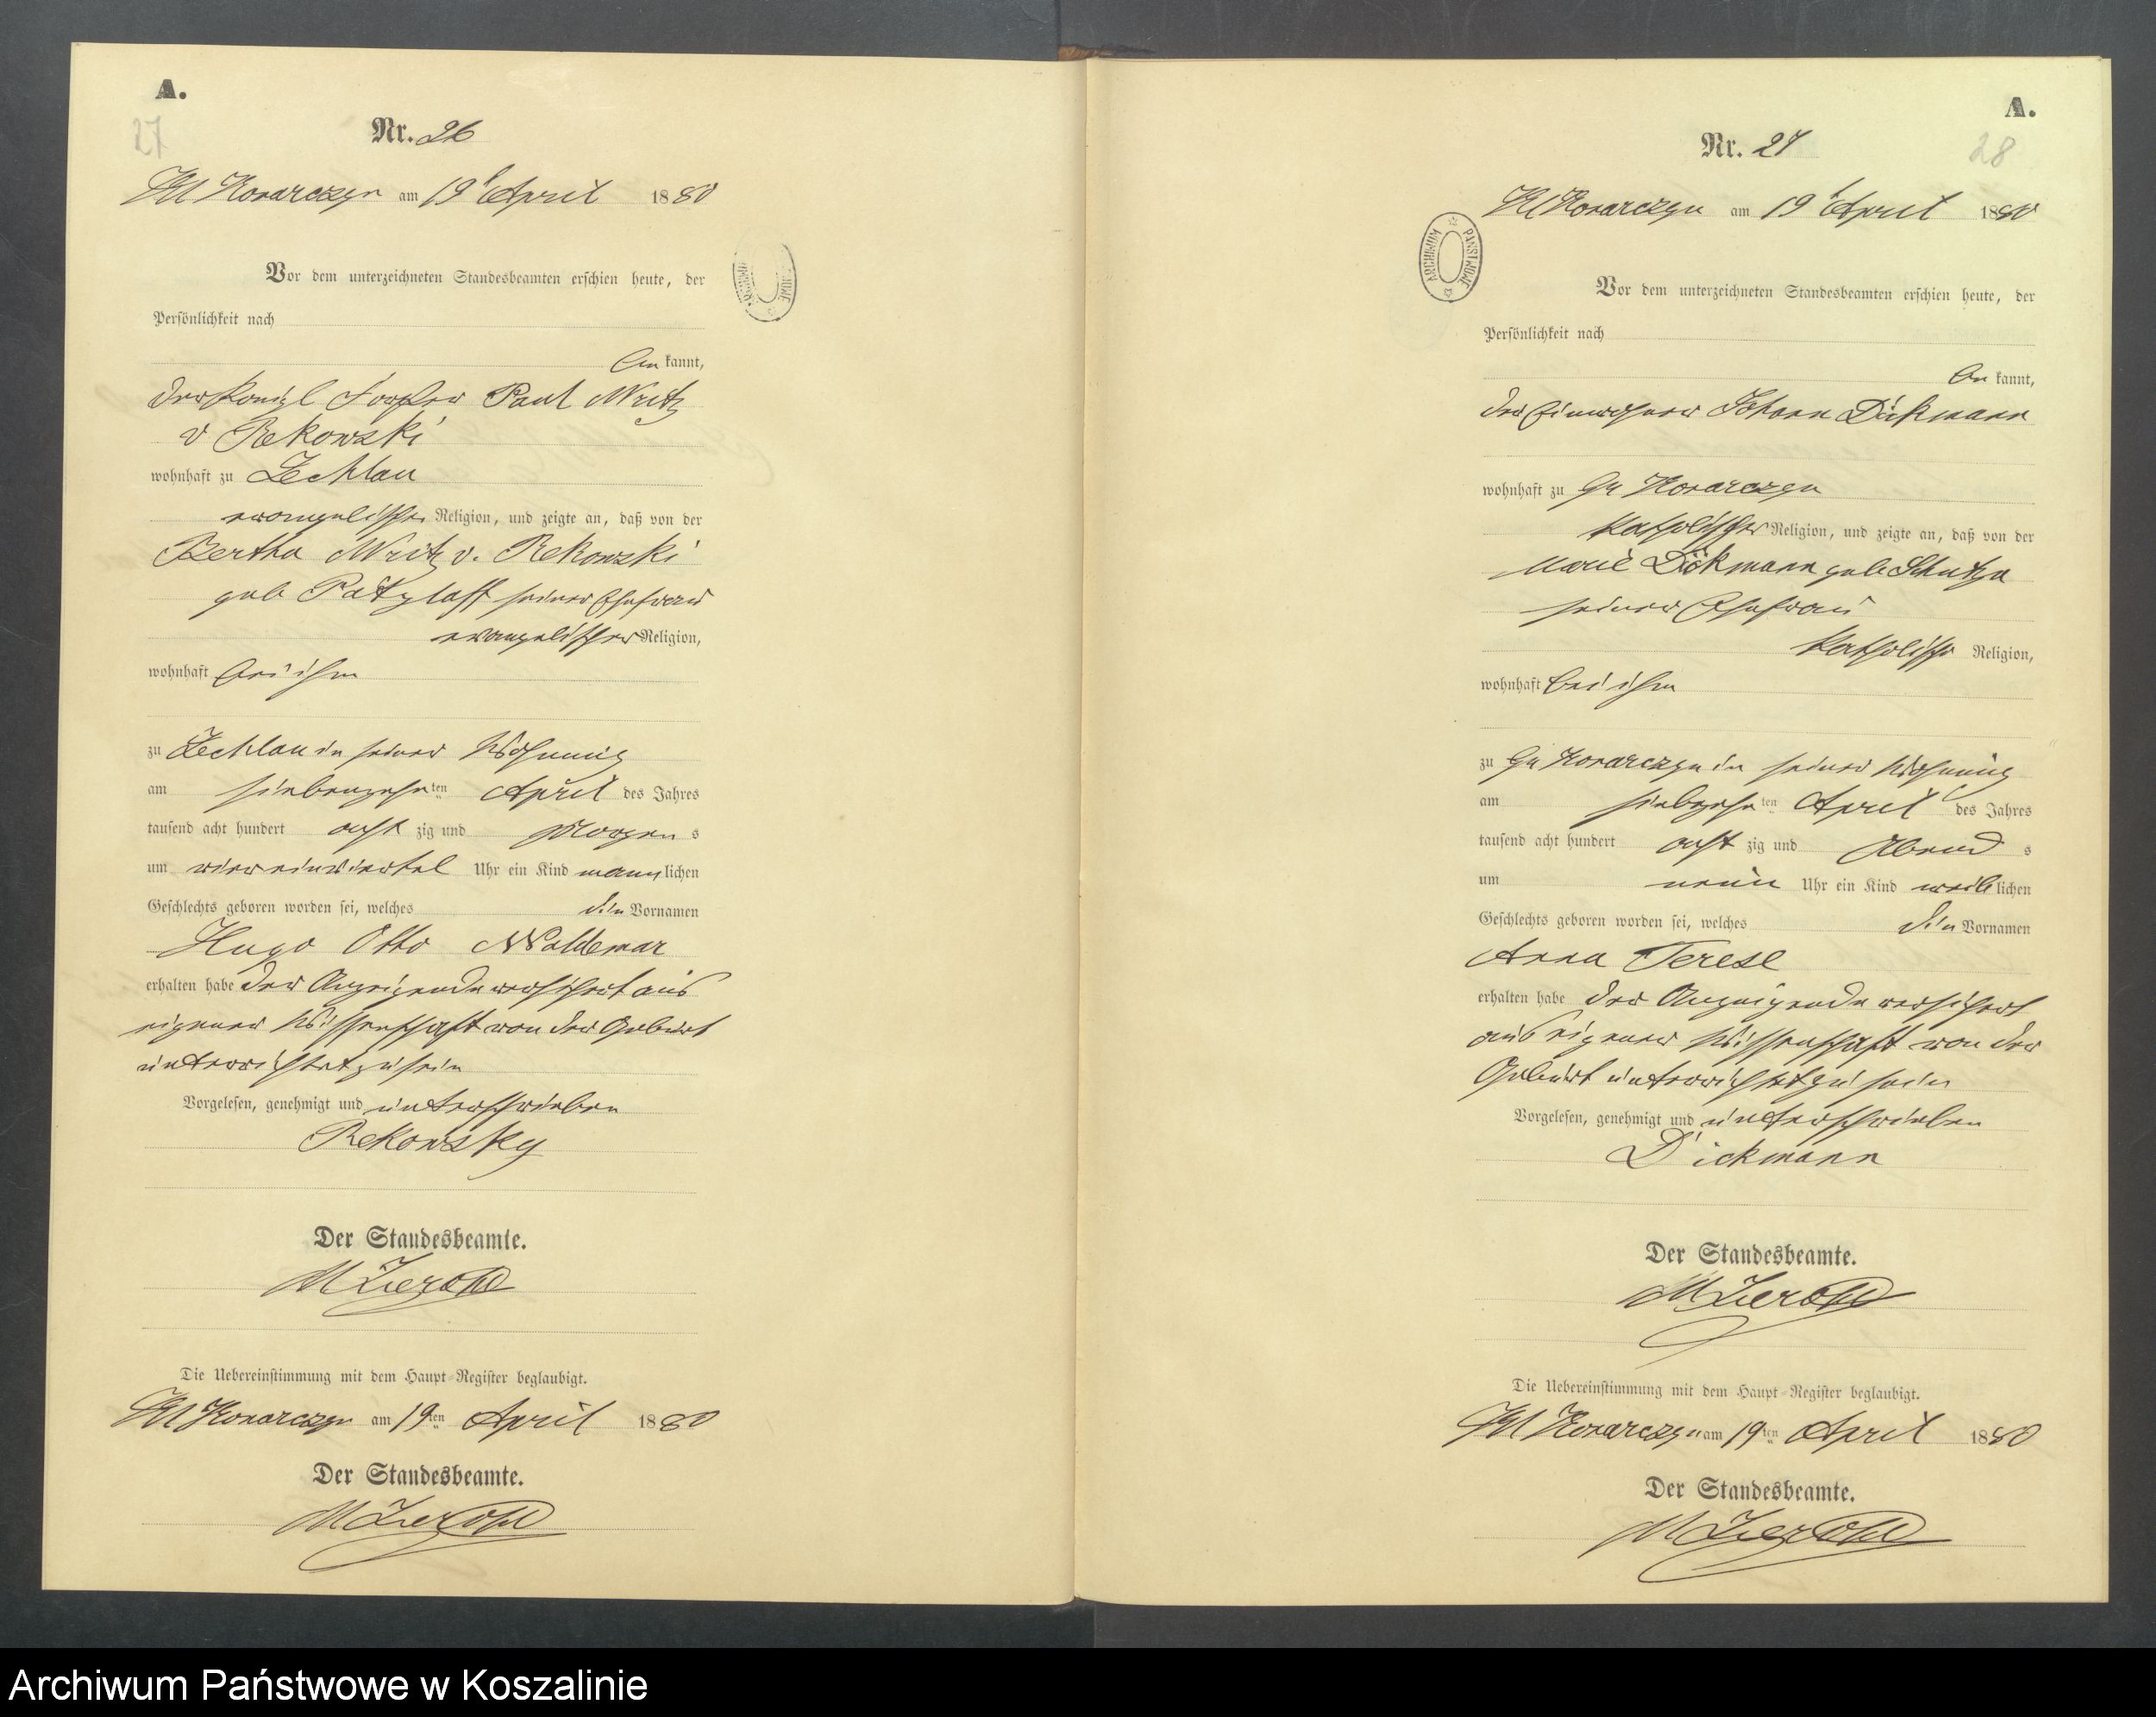 A.
27
Nr. 26
Kl Konarczyn am 19t April 1880
Vor dem unterzeichneten Standesbeamten erschien heute, der
Persönlichkeit nach
be kannt,
der Königl Förster Paul Wrütz
v Rekowski
wohnhaft zu Zechlau
evangelischer Religion, und zeigte an, daß von der
Bertha v. Rekowski
geb seiner Ehefrau
evangelischer Religion,
wohnhaft bei ihm
zu Zechlau in seiner Wohnung
am siebenzehnten April des Jahres
tausend acht hundert acht zig und Morgens
um vier einviertel Uhr ein Kind männlichen
Geschlechts geboren worden sei, welches die Vornamen
Hugo Otto Waldemar
erhalten habe der Anzeigende versichert aus
eigener Wissenschaft von der Geburt
unterrichtet zu sein
Vorgelesen, genehmigt und unterschrieben
Rekowsky
Der Standesbeamte.
Die Uebereinstimmung mit dem Haupt-Register beglaubigt.
Kl Konarczyn am 19ten April 1880
Der Standesbeamte.
A.
28
Nr. 27
Kl Konarczyn am 19t April 1880
ARCHIWUM PAŃSTWOWE
Vor dem unterzeichneten Standesbeamten erschien heute, der
Persönlichkeit nach
be kannt,
der Einwohner Johann Dickmann
wohnhaft zu Gr Konarczyn
katholischer Religion, und zeigte an, daß von der
Marie Dickmann geb
seiner Ehefrau
katholische Religion,
wohnhaft bei ihm
zu Gr Konarczyn in seiner Wohnung
am siebzehnten April des Jahres
tausend acht hundert acht zig und Abends
um neun Uhr ein Kind weiblichen
Geschlechts geboren worden sei, welches die Vornamen
Anna Terese
erhalten habe der Anzeigende versichert
aus eigener Wissenschaft von der
Geburt unterrichtet zu sein
Vorgelesen, genehmigt und unterschrieben
Dickmann
Der Standesbeamte.
Die Uebereinstimmung mit dem Haupt-Register beglaubigt.
Kl Konarczyn am 19ten April 1880
Der Standesbeamte.
Archiwum Państwowe w Koszalinie